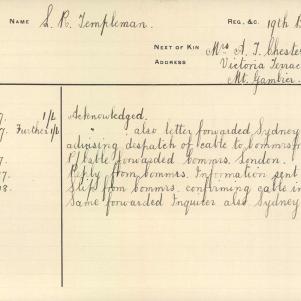 NAME L. R. Templeman. REG. &C. 19th B
NEXT OF KIN Mrs A. J. Chester
ADDRESS Victoria Terrac
Mt. Gambier.
7. 1/L Acknowledged.
7. Further 1/L " also letter forwarded Sydney
advising despatch of cable to bommrs
7. P/bable forwarded bommrs. London.
7. Reply from bommrs. Information sent
8. Slip from bommrs. confirming cable in
Same forwarded Inquirer also Sydney